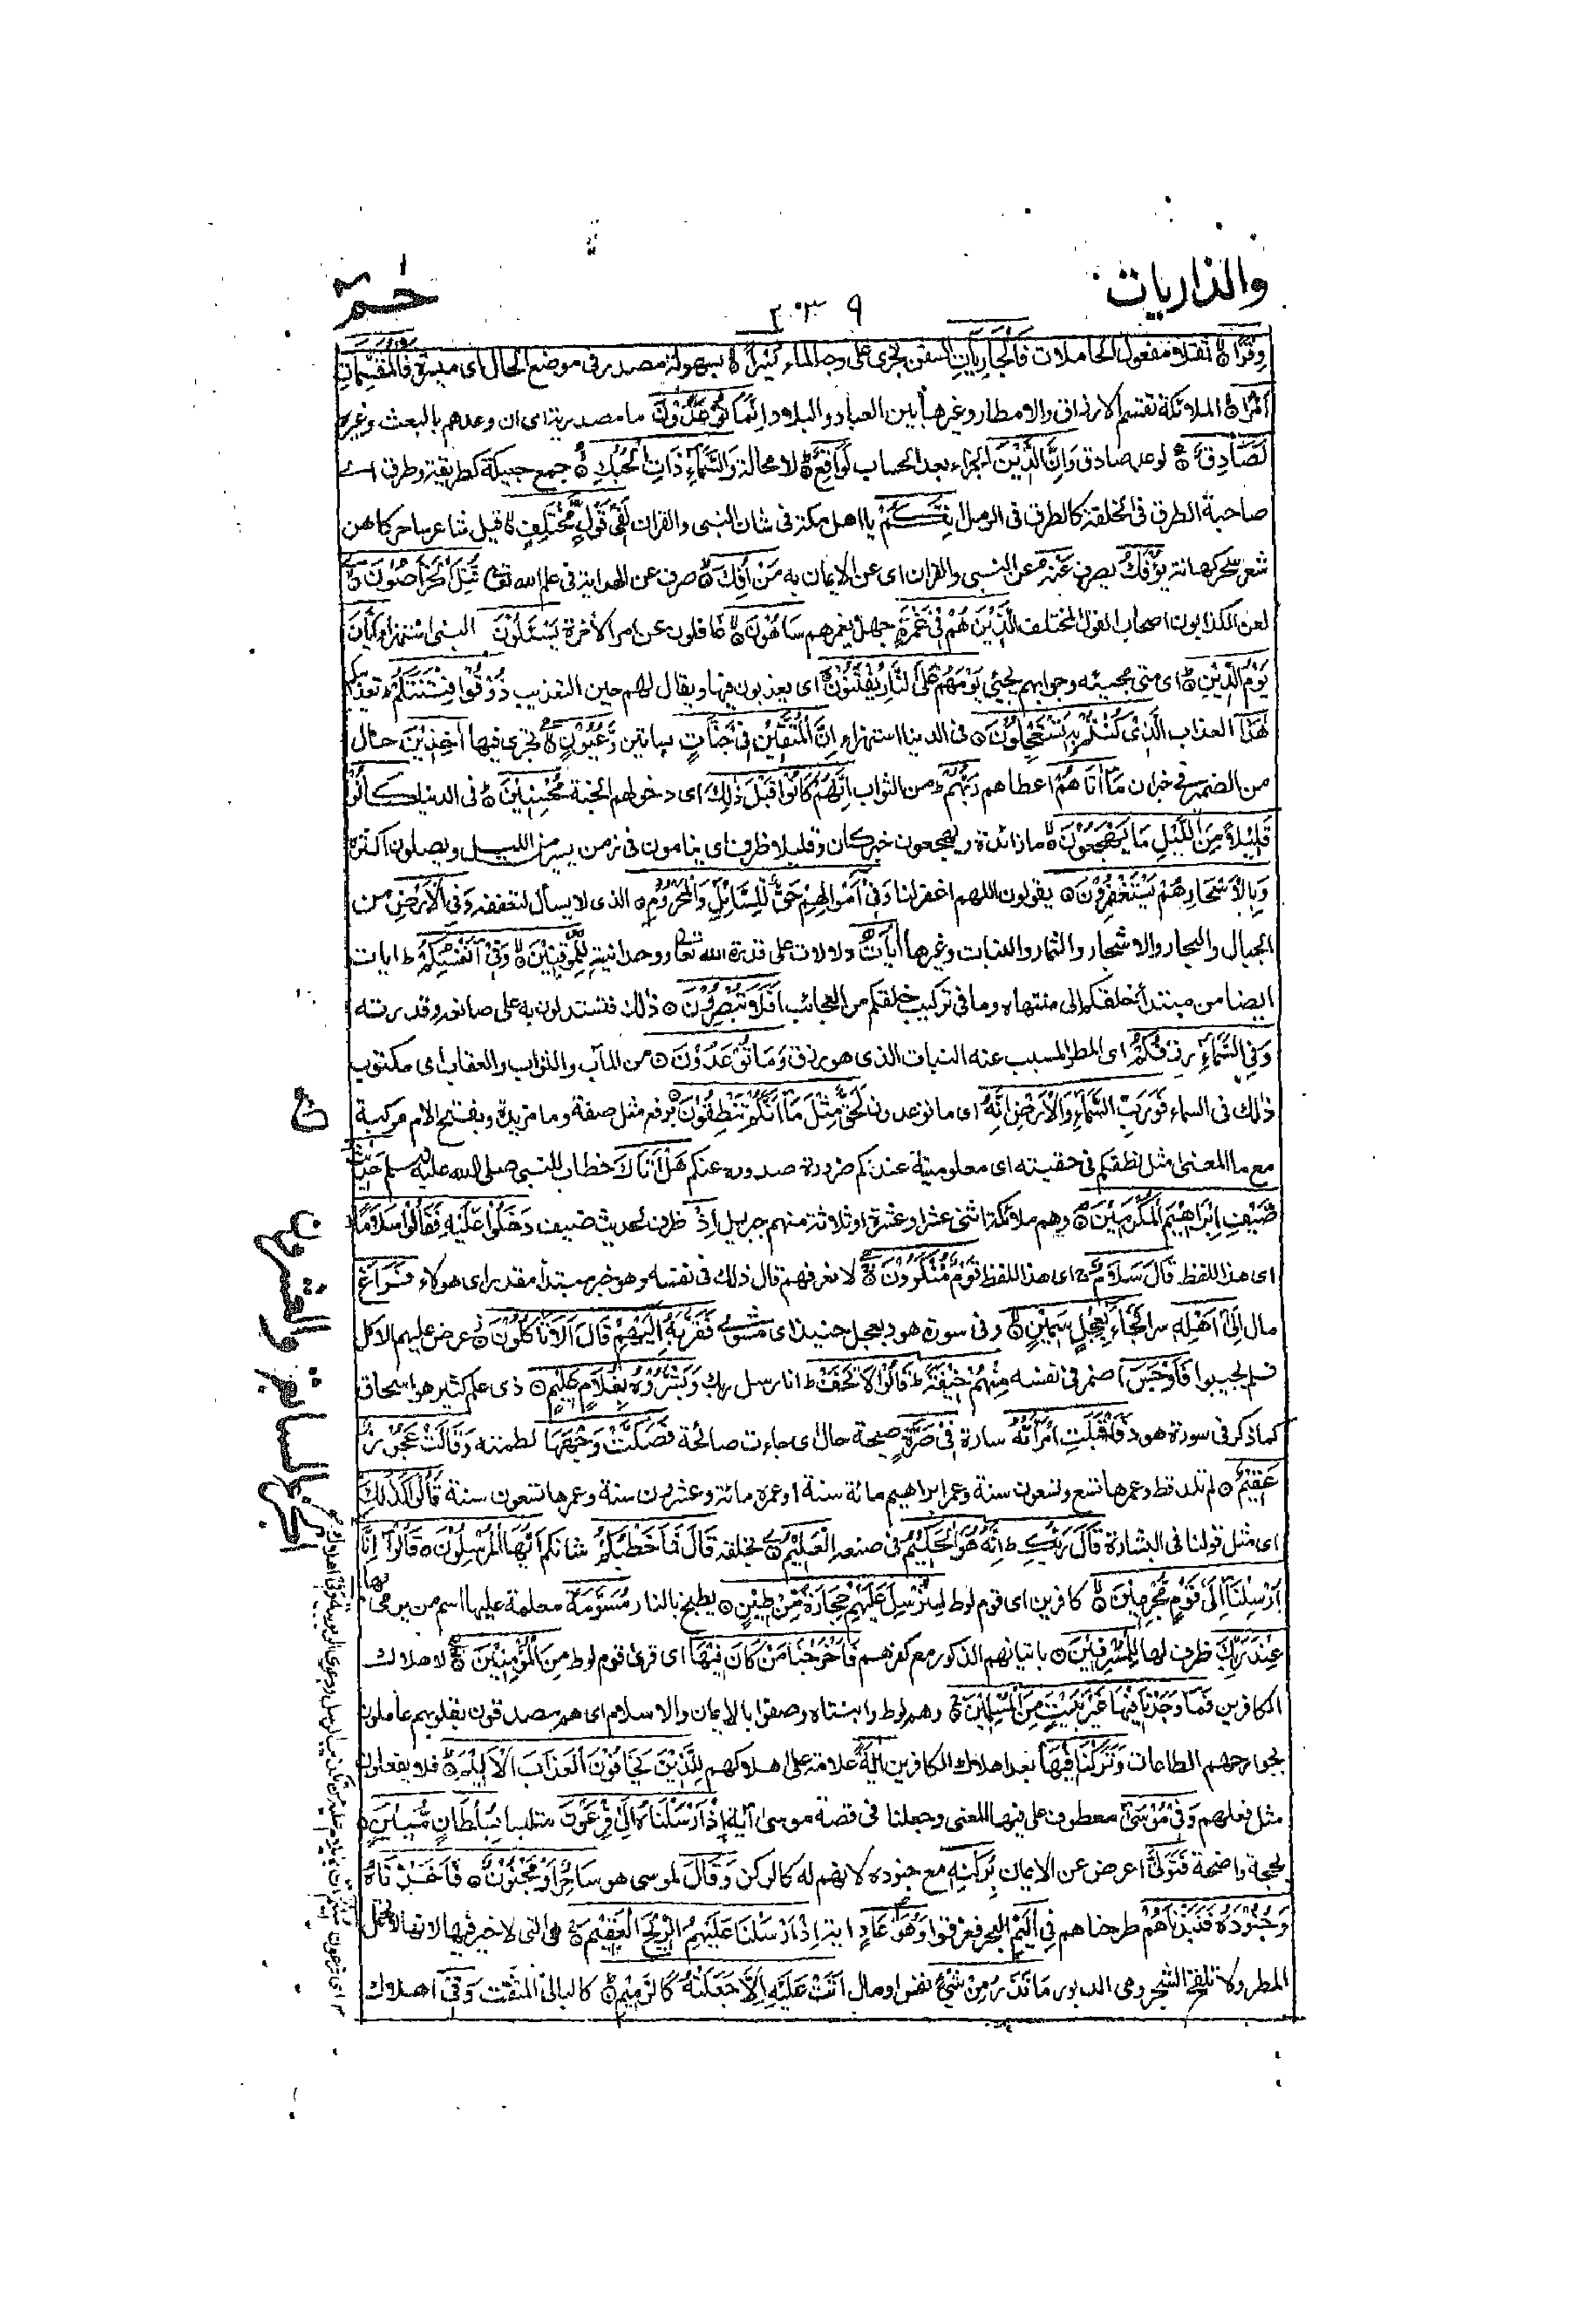 والذاريات
٣٠٣٩
حٰمٓ
وِقْرًا ثقلا مفعول الحاملات فَالْجَارِيَاتِ السفن تجرى على وجه الماء يُسْرًا بسهولة مصدر فى موضع الحال اى ميسرة فَالْمُقَسِّمَاتِ
اَمْرًا الملائكة تقسم الارزاق والامطار وغيرها بين العباد والبلاد اِنَّمَا تُوْعَدُوْنَ ما مصدرية اى ان وعدهم بالبعث وغيره
لَصَادِقٌ لوعد صادق وَاِنَّ الدِّيْنَ الجزاء بعد الحساب لَوَاقِعٌ لا محالة وَالسَّمَآءِ ذَاتِ الْحُبُكِ جمع حبيكة كطريقة وطرق اے
صاحبة الطرق فى الخلقة كالطرق فى الرمل اِنَّكُمْ يا اهل مكة فى شان النبى والقران لَفِىْ قَوْلٍ مُّخْتَلِفٍ قيل شاعر ساحر كاهن
شعر سحر كهانة يُؤْفَكُ يصرف عَنْهُ عن النبى والقران اى عن الايمان به مَنْ اُفِكَ صرف عن الهداية فى علم الله تعالى قُتِلَ الْخَرَّاصُوْنَ
لعن الكذابون اصحاب القول المختلف الَّذِيْنَ هُمْ فِىْ غَمْرَةٍ جهل يغمرهم سَاهُوْنَ غافلون عن امر الأخرة يَسْئَلُوْنَ النبى استهزاء اَيَّانَ
يَوْمُ الدِّيْنِ اى متى مجيئه وجوابهم يجئ يَوْمَ هُمْ عَلَى النَّارِ يُفْتَنُوْنَ اى يعذبون فيها ويقال لهم حين التعذيب ذُوْقُوْا فِتْنَتَكُمْ تعذيبكم
هٰذَا العذاب الَّذِىْ كُنْتُمْ بِهٖ تَسْتَعْجِلُوْنَ فى الدنيا استهزاء اِنَّ الْمُتَّقِيْنَ فِىْ جَنّٰتٍ بساتين وَّعُيُوْنٍ تجرى فيها اٰخِذِيْنَ حال
من الضمير فى خبر ان مَآ اٰتَاهُمْ اعطاهم رَبُّهُمْ من الثواب اِنَّهُمْ كَانُوْا قَبْلَ ذٰلِكَ اى دخولهم الجنة مُحْسِنِيْنَ فى الدنيا كَانُوْا
قَلِيْلًا مِّنَ اللَّيْلِ مَا يَهْجَعُوْنَ ما زائدة ويهجعون خبر كان وقليلا ظرف اى ينامون فى زمن يسير من الليل ويصلون اكثره
وَبِالْاَسْحَارِ هُمْ يَسْتَغْفِرُوْنَ يقولون اللهم اغفر لنا وَفِىْ اَمْوَالِهِمْ حَقٌّ لِّلسَّآئِلِ وَالْمَحْرُوْمِ الذى لا يسأل لتعففه وَفِى الْاَرْضِ من
الجبال والبحار والاشجار والثمار والنبات وغيرها اٰيَاتٌ دلالات على قدرة الله تعالى ووحدانيته لِّلْمُوْقِنِيْنَ وَفِىْ اَنْفُسِكُمْ ايات
ايضا من مبتدأ خلقكم الى منتهاه وما فى تركيب خلقكم من العجائب اَفَلَا تُبْصِرُوْنَ ذلك فتستدلون به على صانعه وقدرته
وَفِى السَّمَآءِ رِزْقُكُمْ اى المطر المسبب عنه النبات الذى هو رزق وَمَا تُوْعَدُوْنَ من المآب والثواب والعقاب اى مكتوب
ذلك فى السماء فَوَرَبِّ السَّمَآءِ وَالْاَرْضِ اِنَّهٗ اى ما توعدون لَحَقٌّ مِّثْلَ مَآ اَنَّكُمْ تَنْطِقُوْنَ برفع مثل صفة وما مزيدة وبفتح الام مركبة
مع ما المعنى مثل نطقكم فى حقيته اى معلوميته عندكم ضرورة صدوره عنكم هَلْ اَتَاكَ خطاب للنبى صلى الله عليه وسلم حَدِيْثُ
ضَيْفِ اِبْرَاهِيْمَ الْمُكْرَمِيْنَ وهم ملائكة اثنى عشر او عشرة او ثلاثة منهم جبريل اِذْ ظرف لحديث ضيف دَخَلُوْا عَلَيْهِ فَقَالُوْا سَلَامًا
اى هذا اللفظ قَالَ سَلَامٌ اى هذا اللفظ قَوْمٌ مُّنْكَرُوْنَ لا نعرفهم قال ذلك فى نفسه وهو خبر مبتدأ مقدر اى هؤلاء فَرَاغَ
مال اِلٰٓى اَهْلِهٖ سرا فَجَآءَ بِعِجْلٍ سَمِيْنٍ وفى سورة هود بعجل حنيذ اى مشوى فَقَرَّبَهٗٓ اِلَيْهِمْ قَالَ اَلَا تَاْكُلُوْنَ عرض عليهم الاكل
فلم يجيبوا فَاَوْجَسَ اضمر فى نفسه مِنْهُمْ خِيْفَةً قَالُوْا لَا تَخَفْ انا رسل ربك وَبَشَّرُوْهُ بِغُلَامٍ عَلِيْمٍ ذى علم كثير هو اسحاق
كما ذكر فى سورة هود فَاَقْبَلَتِ امْرَاَتُهٗ سارة فِىْ صَرَّةٍ صيحة حال اى جاءت صائحة فَصَكَّتْ وَجْهَهَا لطمته وَقَالَتْ عَجُوْزٌ
عَقِيْمٌ لم تلد قط وعمرها تسع وتسعون سنة وعمر ابراهيم مائة سنة او عمره مائة وعشرون سنة وعمرها تسعون سنة قَالُوْا كَذٰلِكِ
اى مثل قولنا فى البشارة قَالَ رَبُّكِ اِنَّهٗ هُوَ الْحَكِيْمُ فى صنعه الْعَلِيْمُ بخلقه قَالَ فَمَا خَطْبُكُمْ شانكم اَيُّهَا الْمُرْسَلُوْنَ قَالُوْٓا اِنَّآ
اُرْسِلْنَآ اِلٰى قَوْمٍ مُّجْرِمِيْنَ كافرين اى قوم لوط لِنُرْسِلَ عَلَيْهِمْ حِجَارَةً مِّنْ طِيْنٍ يطبخ بالنار مُسَوَّمَةً معلمة عليها اسم من يرمى بها
عِنْدَ رَبِّكَ ظرف لها لِلْمُسْرِفِيْنَ باتيانهم الذكور مع كفرهم فَاَخْرَجْنَا مَنْ كَانَ فِيْهَا اى قرى قوم لوط مِنَ الْمُؤْمِنِيْنَ لاهلاك
الكافرين فَمَا وَجَدْنَا فِيْهَا غَيْرَ بَيْتٍ مِّنَ الْمُسْلِمِيْنَ وهم لوط وابنتاه وصفوا بالايمان والاسلام اى هم مصدقون بقلوبهم عاملون
بجوارحهم الطاعات وَتَرَكْنَا فِيْهَآ بعد اهلاك الكافرين اٰيَةً علامة على اهلاكهم لِّلَّذِيْنَ يَخَافُوْنَ الْعَذَابَ الْاَلِيْمَ فلا يفعلون
مثل فعلهم وَفِىْ مُوْسٰٓى معطوف على فيها المعنى وجعلنا فى قصة موسى اٰية اِذْ اَرْسَلْنَاهُ اِلٰى فِرْعَوْنَ متلبسا بِسُلْطَانٍ مُّبِيْنٍ
بحجة واضحة فَتَوَلّٰى اعرض عن الايمان بِرُكْنِهٖ مع جنوده لانهم له كالركن وَقَالَ لموسى هو سَاحِرٌ اَوْ مَجْنُوْنٌ فَاَخَذْنَاهُ
وَجُنُوْدَهٗ فَنَبَذْنَاهُمْ طرحناهم فِى الْيَمِّ البحر فغرقوا وَهُوَ
وَفِىْ عَادٍ اية اِذْ اَرْسَلْنَا عَلَيْهِمُ الرِّيْحَ الْعَقِيْمَ هى التى لا خير فيها لانها لا تحمل
المطر ولا تلقح الشجر وهى الدبور مَا تَذَرُ مِنْ شَىْءٍ نفس او مال اَتَتْ عَلَيْهِ اِلَّا جَعَلَتْهُ كَالرَّمِيْمِ كالبالى المتفتت وَفِىْ اهلاك
ع
الجزء السابع والعشرون